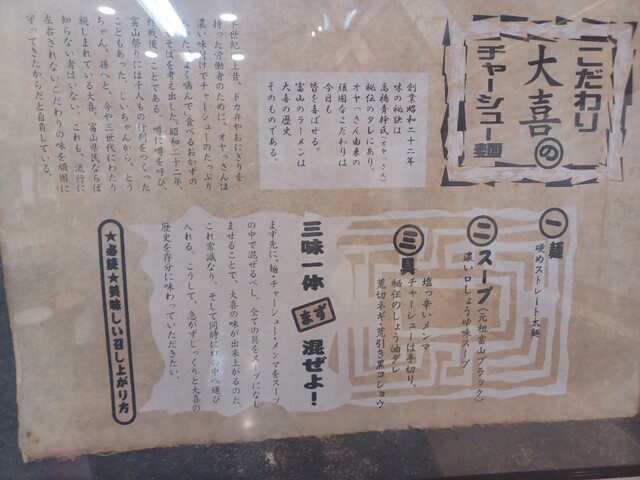 こだわり
大喜の
チャーシュー麺
創業昭和二十二年
味の秘訣は
高橋青幹氏（オヤっさん）
秘伝のタレにあり。
オヤっさん由来の
頑固なこだわりは
今日も
皆を喜ばせる。
富山のラーメンは
大喜の歴史
そのものである。
半世紀以上昔、ドカ弁やおにぎりを
持った労働者のために、オヤっさんは
濃い味付けでチャーシューのたっぷり
入った、よく噛んで食べるおかずの
中華そばを考え出した。昭和二十二年、
終戦後のことである。噂に噂を呼び、
富山祭りには千人もの行列をつくった
こともあった。じいちゃんから、とう
ちゃん、孫へと、今や三世代にわたり
親しまれている大喜。富山県民ならば
知らない者はいない。これも、流行に
左右されないこだわりの味を頑固に
守ってきたからだと自負している。
一 麺
硬めストレート太麺
二 スープ〈元祖富山ブラック〉
濃い口しょうゆ味スープ
三 具
塩っ辛いメンマ
チャーシューは手切り、
秘伝のしょう油ダレ
荒切ネギ・荒引き黒コショウ
三味一体 まず 混ぜよ！
まず先に、麺・チャーシュー・メンマをスープ
の中で混ぜるべし。全ての具をスープになじ
ませることで、大喜の味が出来上がるのだ。
これ常識なり。そして同時に口の中へ運び
入れる。こうして、急がずじっくりと大喜の
歴史を存分に味わっていただきたい。
★必読★美味しい召し上がり方